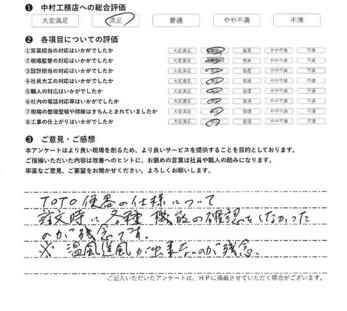 ❶ 中村工務店への総合評価
大変満足 満足 普通 やや不満 不満
❷ 各項目についての評価
①営業担当の対応はいかがでしたか 大変満足 満足 普通 やや不満 不満
②現場監督の対応はいかがでしたか 大変満足 満足 普通 やや不満 不満
③設計担当の対応はいかがでしたか 大変満足 満足 普通 やや不満 不満
④社員大工の対応はいかがでしたか 大変満足 満足 普通 やや不満 不満
⑤職人の対応はいかがでしたか 大変満足 満足 普通 やや不満 不満
⑥社内の電話対応等はいかがでしたか 大変満足 満足 普通 やや不満 不満
⑦現場の整理整頓や掃除はきちんとされていましたか 大変満足 満足 普通 やや不満 不満
⑧工事の仕上がりはいかがでしたか 大変満足 満足 普通 やや不満 不満
❸ ご意見・ご感想
本アンケートはより良い現場を創るため、より良いサービスを提供することを目的としております。
ご指摘いただいた内容は改善へのヒントに、お褒めの言葉は社員や職人の励みになります。
率直なご意見、ご要望をお聞かせください。よろしくお願いします。
TOTO便器の仕様について
注文時に各種機能の確認をしなかった
のが残念です。
※ 温風送風が出来ないのが残念。
ご記入いただいたアンケートは、HPに掲載させていただく場合がございます。